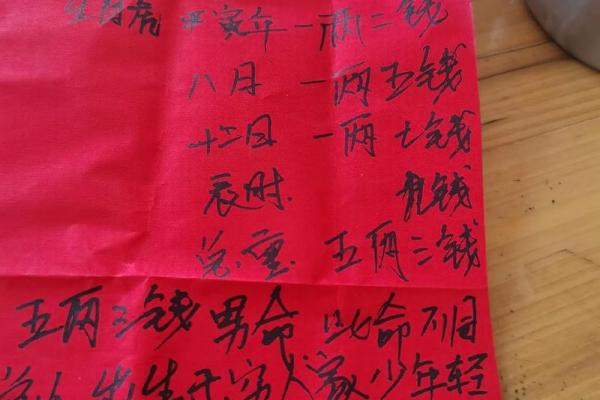 生肖虎 甲寅年 一两二钱
八月 一两五钱
十二日 一两七钱
辰时. 九钱
总重 五两三钱
五两三钱男命 此命不同
人 出生于穷人家少年轻